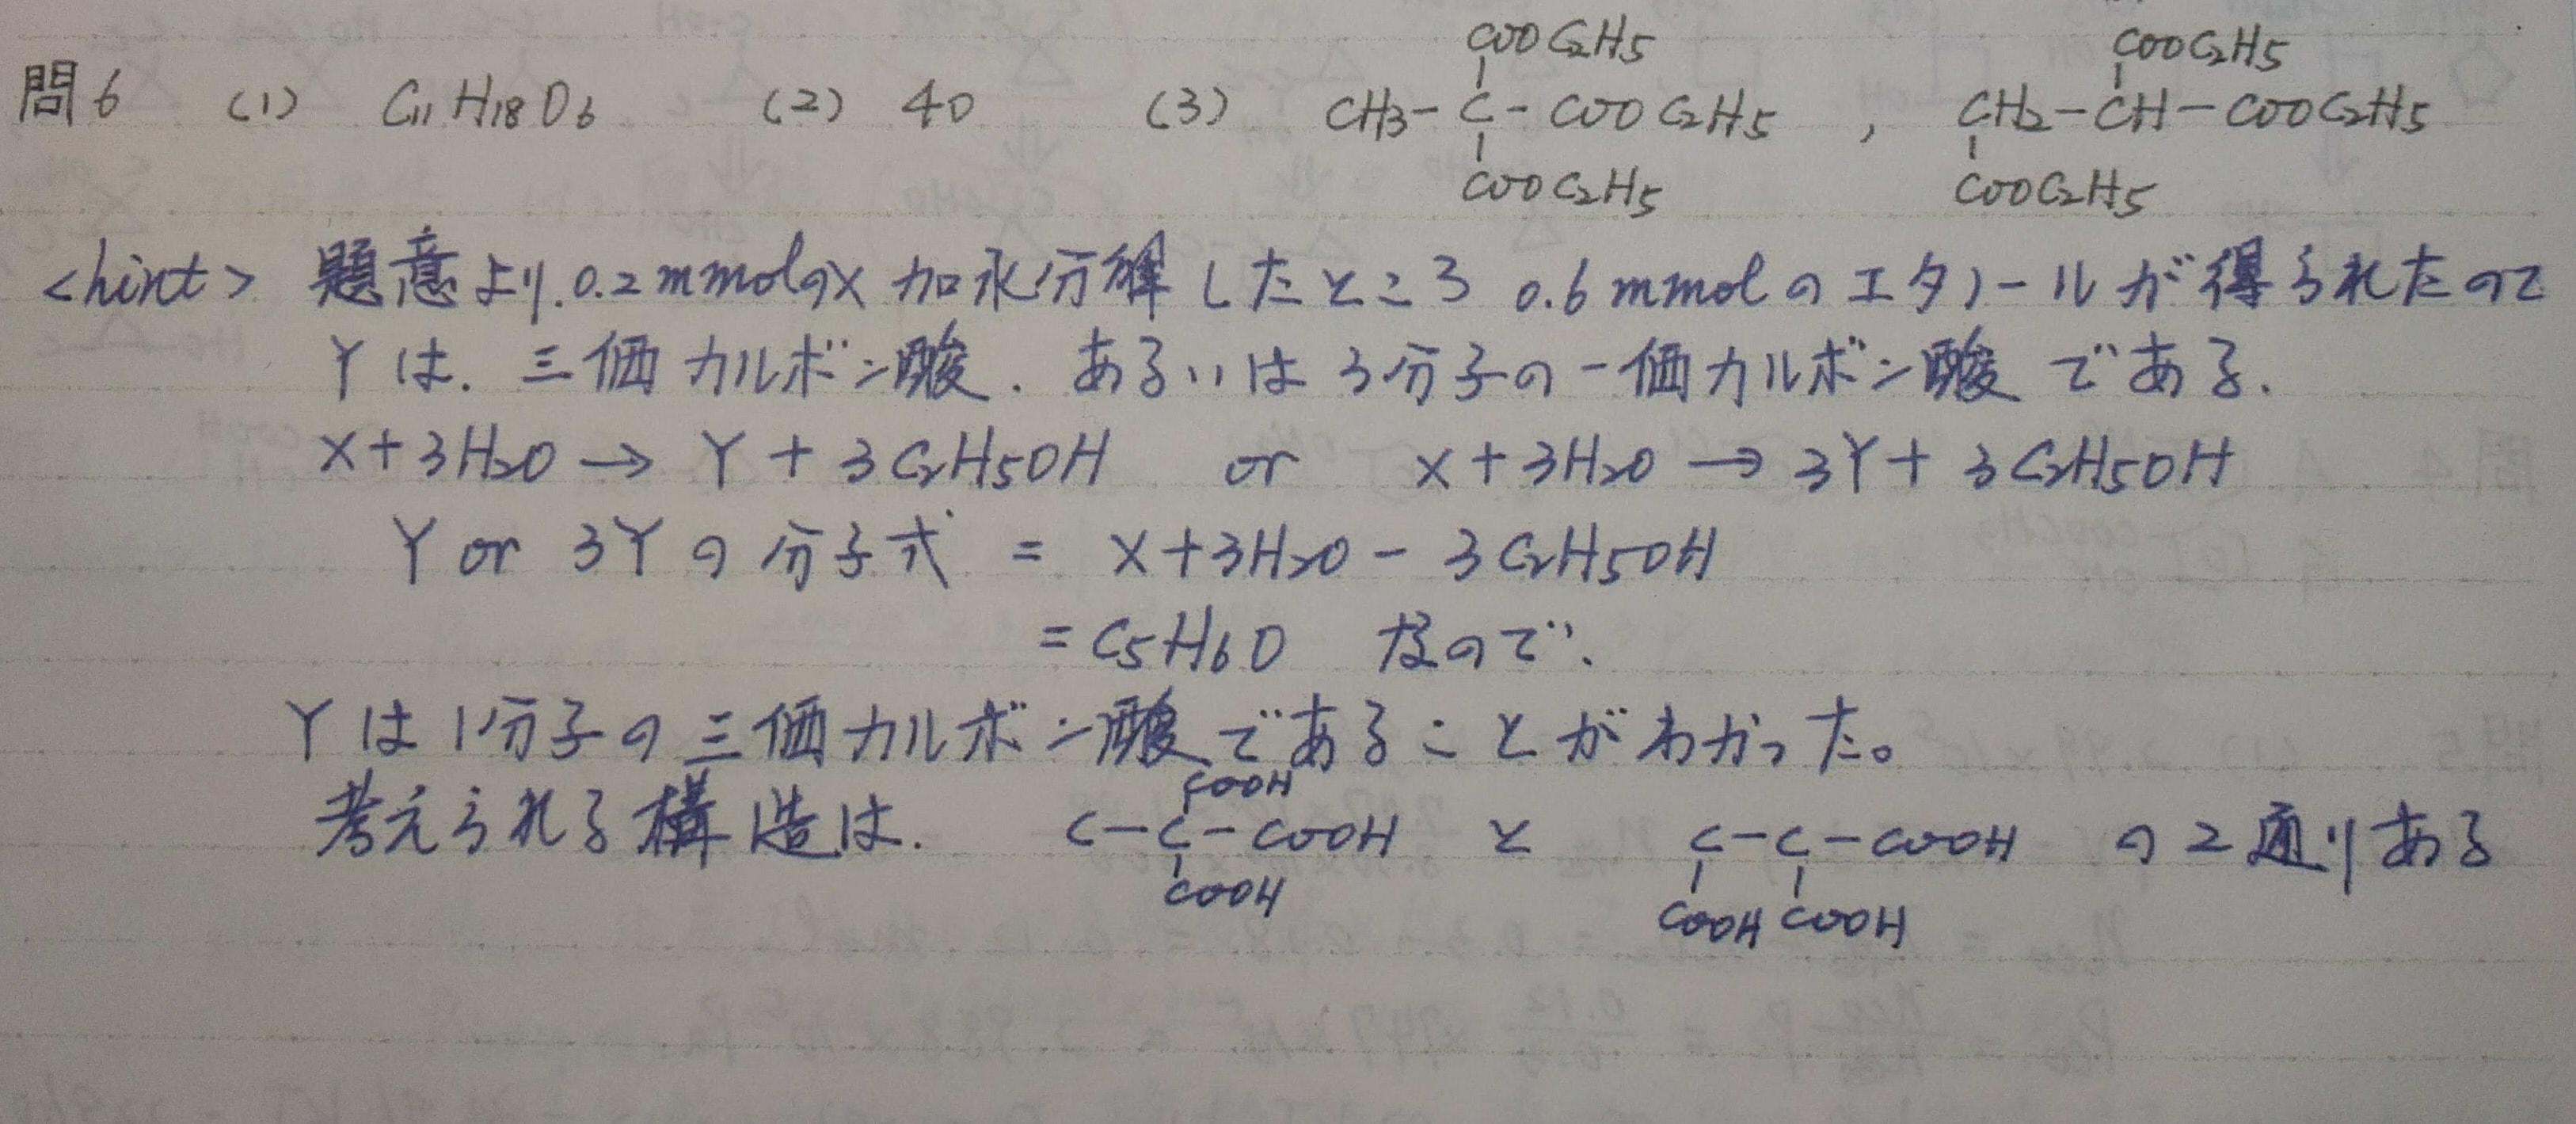 問6 (1) C₁₁H₁₈O₆ (2) 40 (3) CH₃-C-COOC₂H₅ , CH₂-CH-COOC₂H₅
COOC₂H₅ COOC₂H₅
COOC₂H₅ COOC₂H₅
<hint> 題意より、0.2mmolのX加水分解したところ 0.6mmolのエタノールが得られたので
Yは、三価カルボン酸、あるいは3分子の一価カルボン酸である、
X+3H₂O → Y + 3C₂H₅OH or X+3H₂O → 3Y+3C₂H₅OH
Y or 3Yの分子式 = X+3H₂O - 3C₂H₅OH
= C₅H₆O なので、
Yは1分子の三価カルボン酸であることがわかった。
考えられる構造は、 C-C-COOH と C-C-COOH の2通りある
COOH
COOH COOH COOH